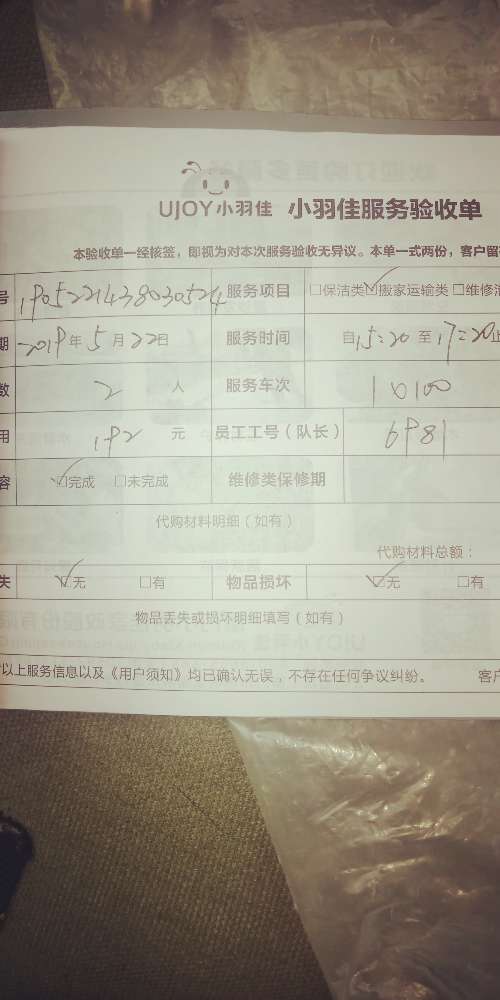 UJOY小羽佳 小羽佳服务验收单
本验收单一经核签，即视为对本次服务验收无异议。本单一式两份，客户留
号 190522143803052 服务项目 □保洁类☑搬家运输类□维修清
期 2019年5月22日 服务时间 自15:20至17:20止
数 2 人 服务车次
用 192 元 员工工号（队长） 6981
容 ☑完成 □未完成 维修类保修期
代购材料明细（如有）
代购材料总额：
失 ☑无 □有 物品损坏 ☑无 □有
物品丢失或损坏明细填写（如有）
以上服务信息以及《用户须知》均已确认无误，不存在任何争议纠纷。 客户